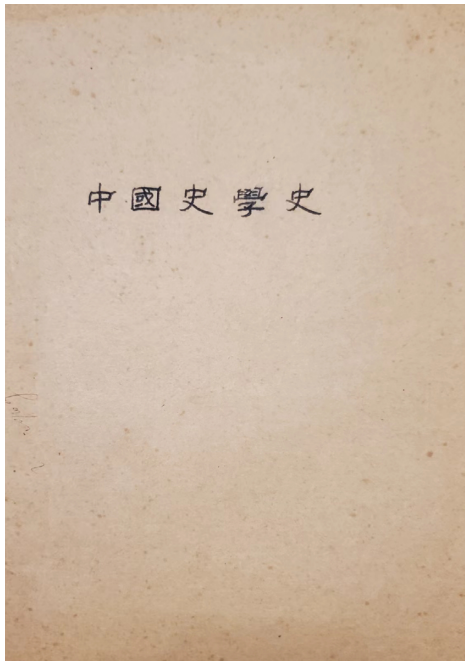 中國史學史